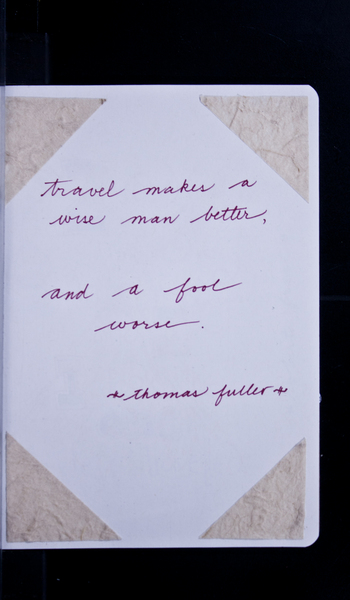 travel makes a
wise man better,
and a fool
worse.
*thomas fuller*